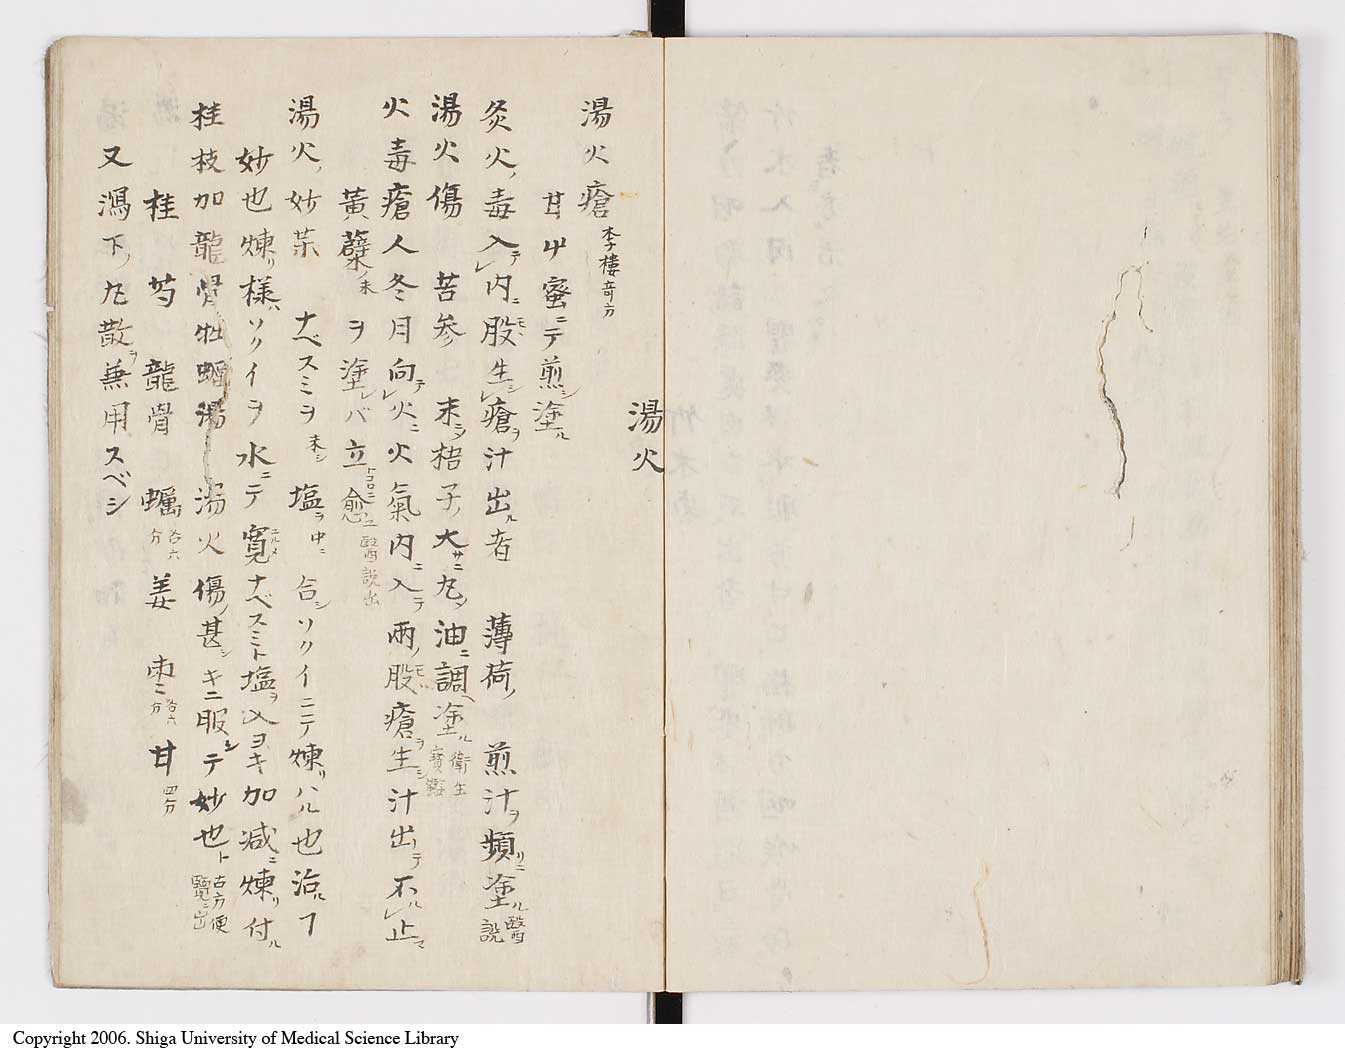 湯火
湯火瘡 李樓奇方
甘艸蜜ニテ煎シ塗ル
灸火ノ毒入テレ内ニ股モヽニ生シレ瘡ヲ汁出ル者 薄荷ノ煎汁ヲ頻リニ塗ル 醫説
湯火傷 苦参 末シ 梧子ノ大サニ丸メ油ニ調ヘ塗ル 衛生寳鑑
火毒瘡人冬月向テレ火ニ火氣内ニ入テ兩ノ股モヽ瘡ヲ生シ汁出テ不ルレ止マ
黄蘗ノ末ヲ塗レバ立トコロニ愈ユ 醫説出
湯火ノ妙薬 ナベスミヲ末シ 塩ヲ中ニ合シソクイニテ煉リハル也治ルヿ
妙也煉リ様ハソクイヲ水ニテ寛ユルメナベスミト塩ヲ入ヨキ加减ニ煉リ付ル
桂枝加龍骨牡蠣湯 湯火傷ノ甚シキニ服シテ妙也ト 古方便覽ニ出
桂 芍 龍骨 蠣 各六分 姜 枣 二 各六分 甘 四分
又瀉下ノ丸散ヲ兼用スベシ
Copyright 2006. Shiga University of Medical Science Library